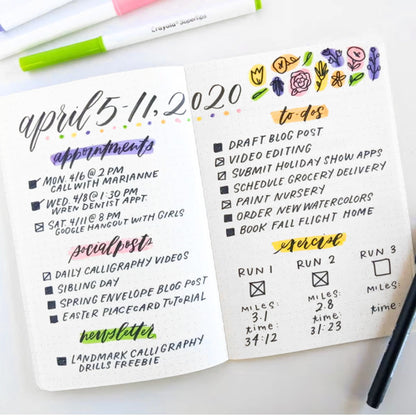 Crayola SuperTips
april 5-11, 2020
appointments
MON. 4/6 @ 2 PM
CALL WITH MARIANNE
WED. 4/8 @ 1:30 PM
WREN DENTIST APPT.
SAT. 4/11 @ 8 PM
GOOGLE HANGOUT WITH GIRLS
social posts
DAILY CALLIGRAPHY VIDEOS
SIBLING DAY
SPRING ENVELOPE BLOG POST
EASTER PLACECARD TUTORIAL
newsletter
LANDMARK CALLIGRAPHY
DRILLS FREEBIE
to-dos
DRAFT BLOG POST
VIDEO EDITING
SUBMIT HOLIDAY SHOW APPS
SCHEDULE GROCERY DELIVERY
PAINT NURSERY
ORDER NEW WATERCOLORS
BOOK FALL FLIGHT HOME
exercise
RUN 1
MILES:
3.1
time:
34:12
RUN 2
MILES:
2.8
time:
31:23
RUN 3
MILES:
time: